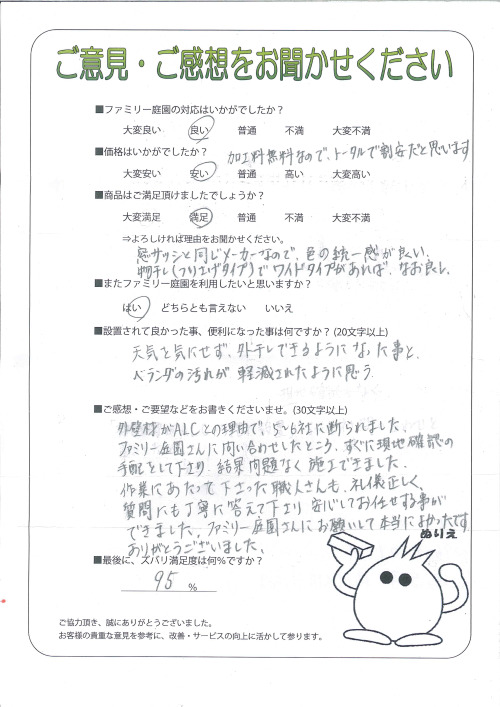 ご意見・ご感想をお聞かせください
■ファミリー庭園の対応はいかがでしたか？
大変良い 良い 普通 不満 大変不満
■価格はいかがでしたか？ 加工料無料なので、トータルで割安だと思います
大変安い 安い 普通 高い 大変高い
■商品はご満足頂けましたでしょうか？
大変満足 満足 普通 不満 大変不満
⇒よろしければ理由をお聞かせください。
窓サッシと同じメーカーなので、色の統一感が良い。
物干し(フリエゲタイプ)でワイドタイプがあれば、なお良し。
■またファミリー庭園を利用したいと思いますか？
はい どちらとも言えない いいえ
■設置されて良かった事、便利になった事は何ですか？(20文字以上)
天気を気にせず、外干しできるようになった事と、
ベランダの汚れが軽減されたように思う
■ご感想・ご要望などをお書きくださいませ。(30文字以上)
外壁材がALCとの理由で、5～6社に断られました。
ファミリー庭園さんに問い合わせしたところ、すぐに現地確認の
手配をして下さり、結果問題なく施工できました。
作業にあたって下さった職人さんも、礼儀正しく、
質問にも丁寧に答えて下さり安心してお任せする事が
できました。ファミリー庭園さんにお願いして本当によかったです
ありがとうございました。
ぬりえ
■最後に、ズバリ満足度は何％ですか？
95 ％
ご協力頂き、誠にありがとうございました。
お客様の貴重な意見を参考に、改善・サービスの向上に活かして参ります。